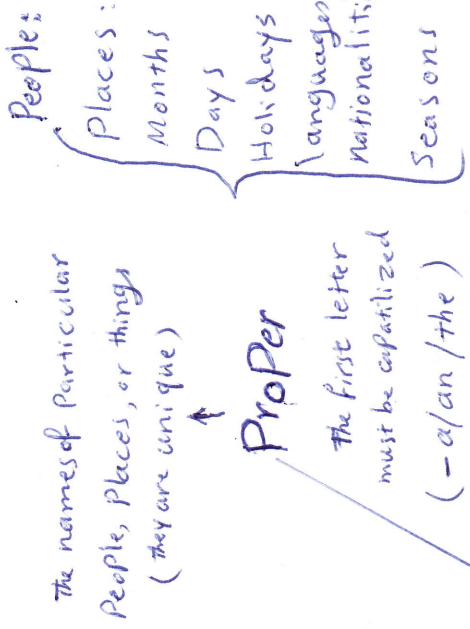 The names of Particular
People, Places, or things
(they are unique)
ProPer
The first letter
must be capatilized
(-a/an/the)
People:
Places:
Months
Days
Holidays
languages
nationaliti
Seasons